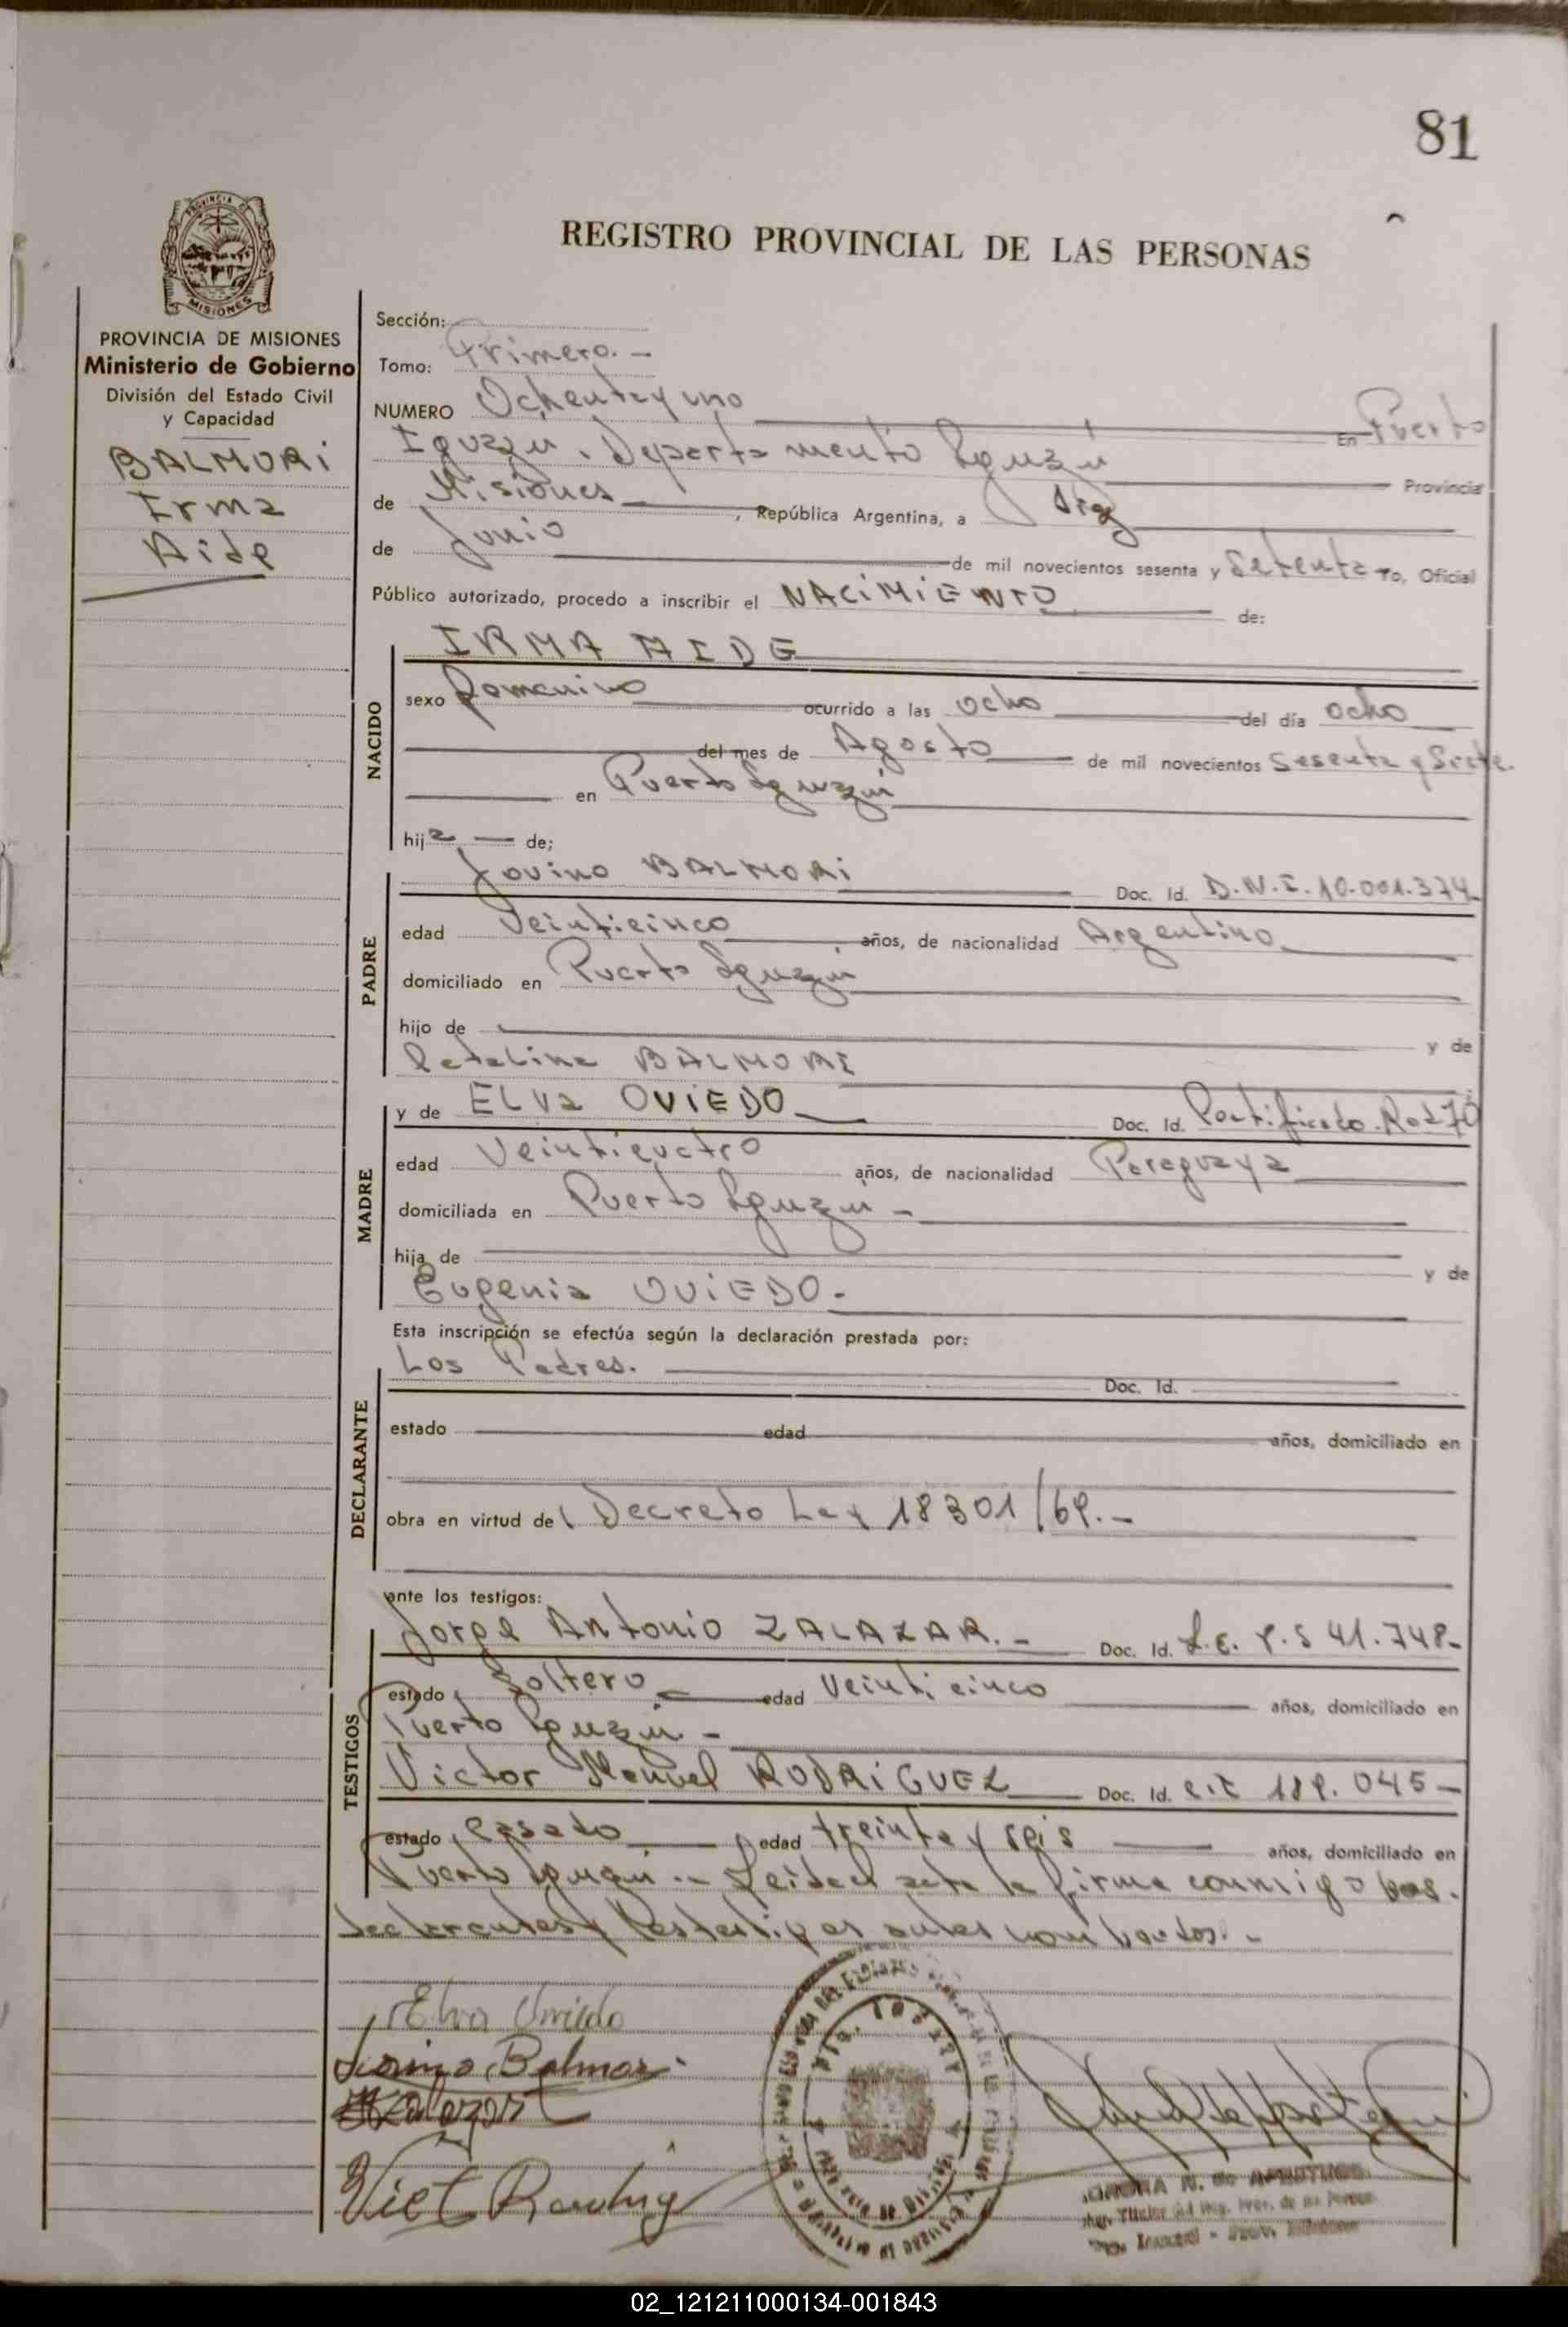 81
REGISTRO PROVINCIAL DE LAS PERSONAS
PROVINCIA DE MISIONES
MISIONES
PROVINCIA DE MISIONES
Ministerio de Gobierno
División del Estado Civil
y Capacidad
BALMORI
Irma
Aide
Sección:
Tomo: Primero. -
NUMERO Ochenta y uno En Puerto
Iguazú. Departamento Iguazú Provincia
de Misiones, República Argentina, a
de Junio de mil novecientos sesenta y Setenta Yo, Oficial
Público autorizado, procedo a inscribir el NACIMIENTO de:
IRMA AIDE
NACIDO
sexo Femenino ocurrido a las ocho del día ocho
del mes de Agosto de mil novecientos Sesenta y Siete.
en Puerto Iguazú
hija de;
PADRE
Jovino BALMORI Doc. Id. D.N.I. 10.001.374
edad Veinticinco, años, de nacionalidad Argentino
domiciliado en Puerto Iguazú
hijo de y de
Catalina BALMORI
MADRE
y de ELVA OVIEDO Doc. Id. Certificado
edad Veinticuatro años, de nacionalidad Paraguaya
domiciliada en Puerto Iguazú -
hija de y de
Eugenia OVIEDO -
Esta inscripción se efectúa según la declaración prestada por:
DECLARANTE
Los Padres. Doc. Id.
estado edad años, domiciliado en
obra en virtud de Decreto Ley 18301/69. -
ante los testigos:
TESTIGOS
Jorge Antonio ZALAZAR. - Doc. Id. L.E. 41.748-
estado Soltero edad Veinticinco años, domiciliado en
Puerto Iguazú -
Victor Manuel RODRIGUEZ Doc. Id. 045-
estado Casado edad treinta y seis años, domiciliado en
Puerto Iguazú. - Leida el acta la firma conmigo los
declarantes y los testigos antes nombrados. -
Elva Oviedo
Jovino Balmori
Zalazar
Vict Rodrig
02_121211000134-001843